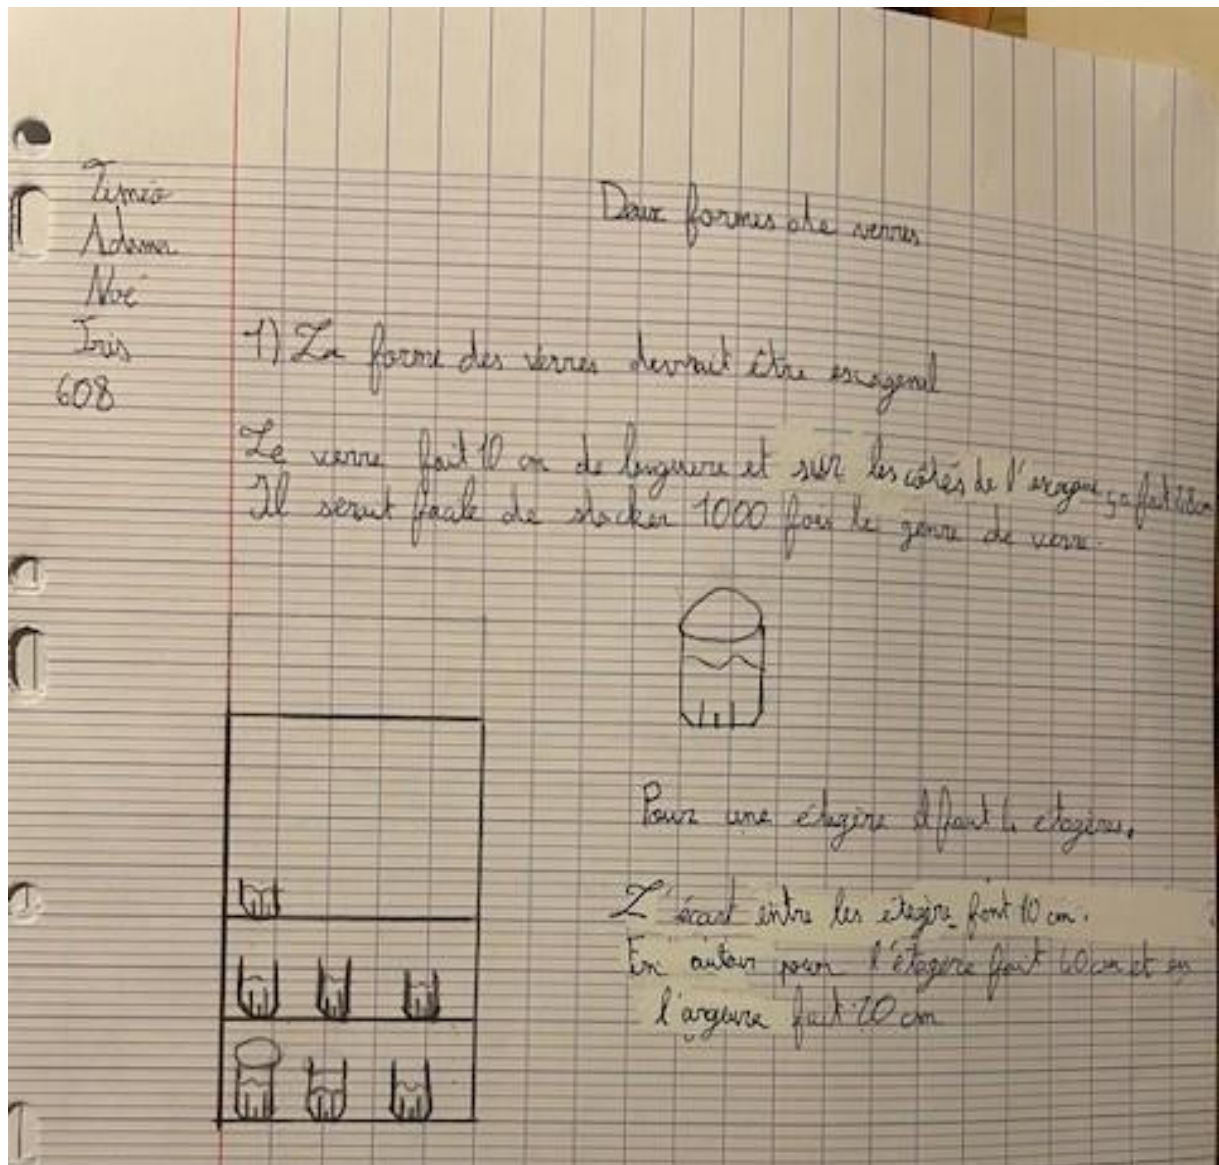 Timéo
Adama
Noé
Iris
608
Deux formes de verres
1) La forme des verres devrait être exagonal
Le verre fait 10 cm de longueure et sur les côtés de l'exagone ça fait
Il serait facile de stocker 1000 fois le genre de verre.
Pour une étagère il faut 4 étagères.
L'écart entre les étagère font 10 cm.
En auteur pour l'étagère fait 40 cm et en
l'argeure fait 20 cm